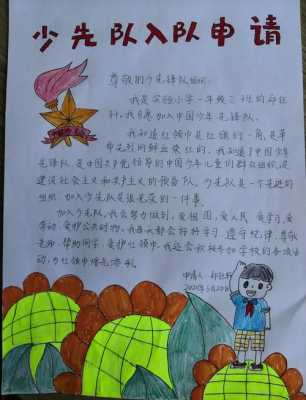 少先队入队申请
尊敬的少先队组织:
我是实验小学一年级三班的邱
,我自愿加入中国少年先锋队。
我知道红领巾是红旗的一角,是革
命先烈的鲜血染红的。我知道了中国少年
先锋队,是中国共产党领导的中国少年儿童的群众组织,是
建设社会主义和共产主义的预备队。少先队是一个先进的
组织 加入少先队是很光荣的一件事。
加入少先队,我会努力做到:爱祖国,爱人民 爱学习,爱
劳动,爱护公共财物,我每天都会好好学习,遵守纪律,尊敬
老师,帮助同学,爱护红领巾,我还会积极参加学校的各项活
动,为红领巾增光添彩。
申请人:邱
2020年5月20日